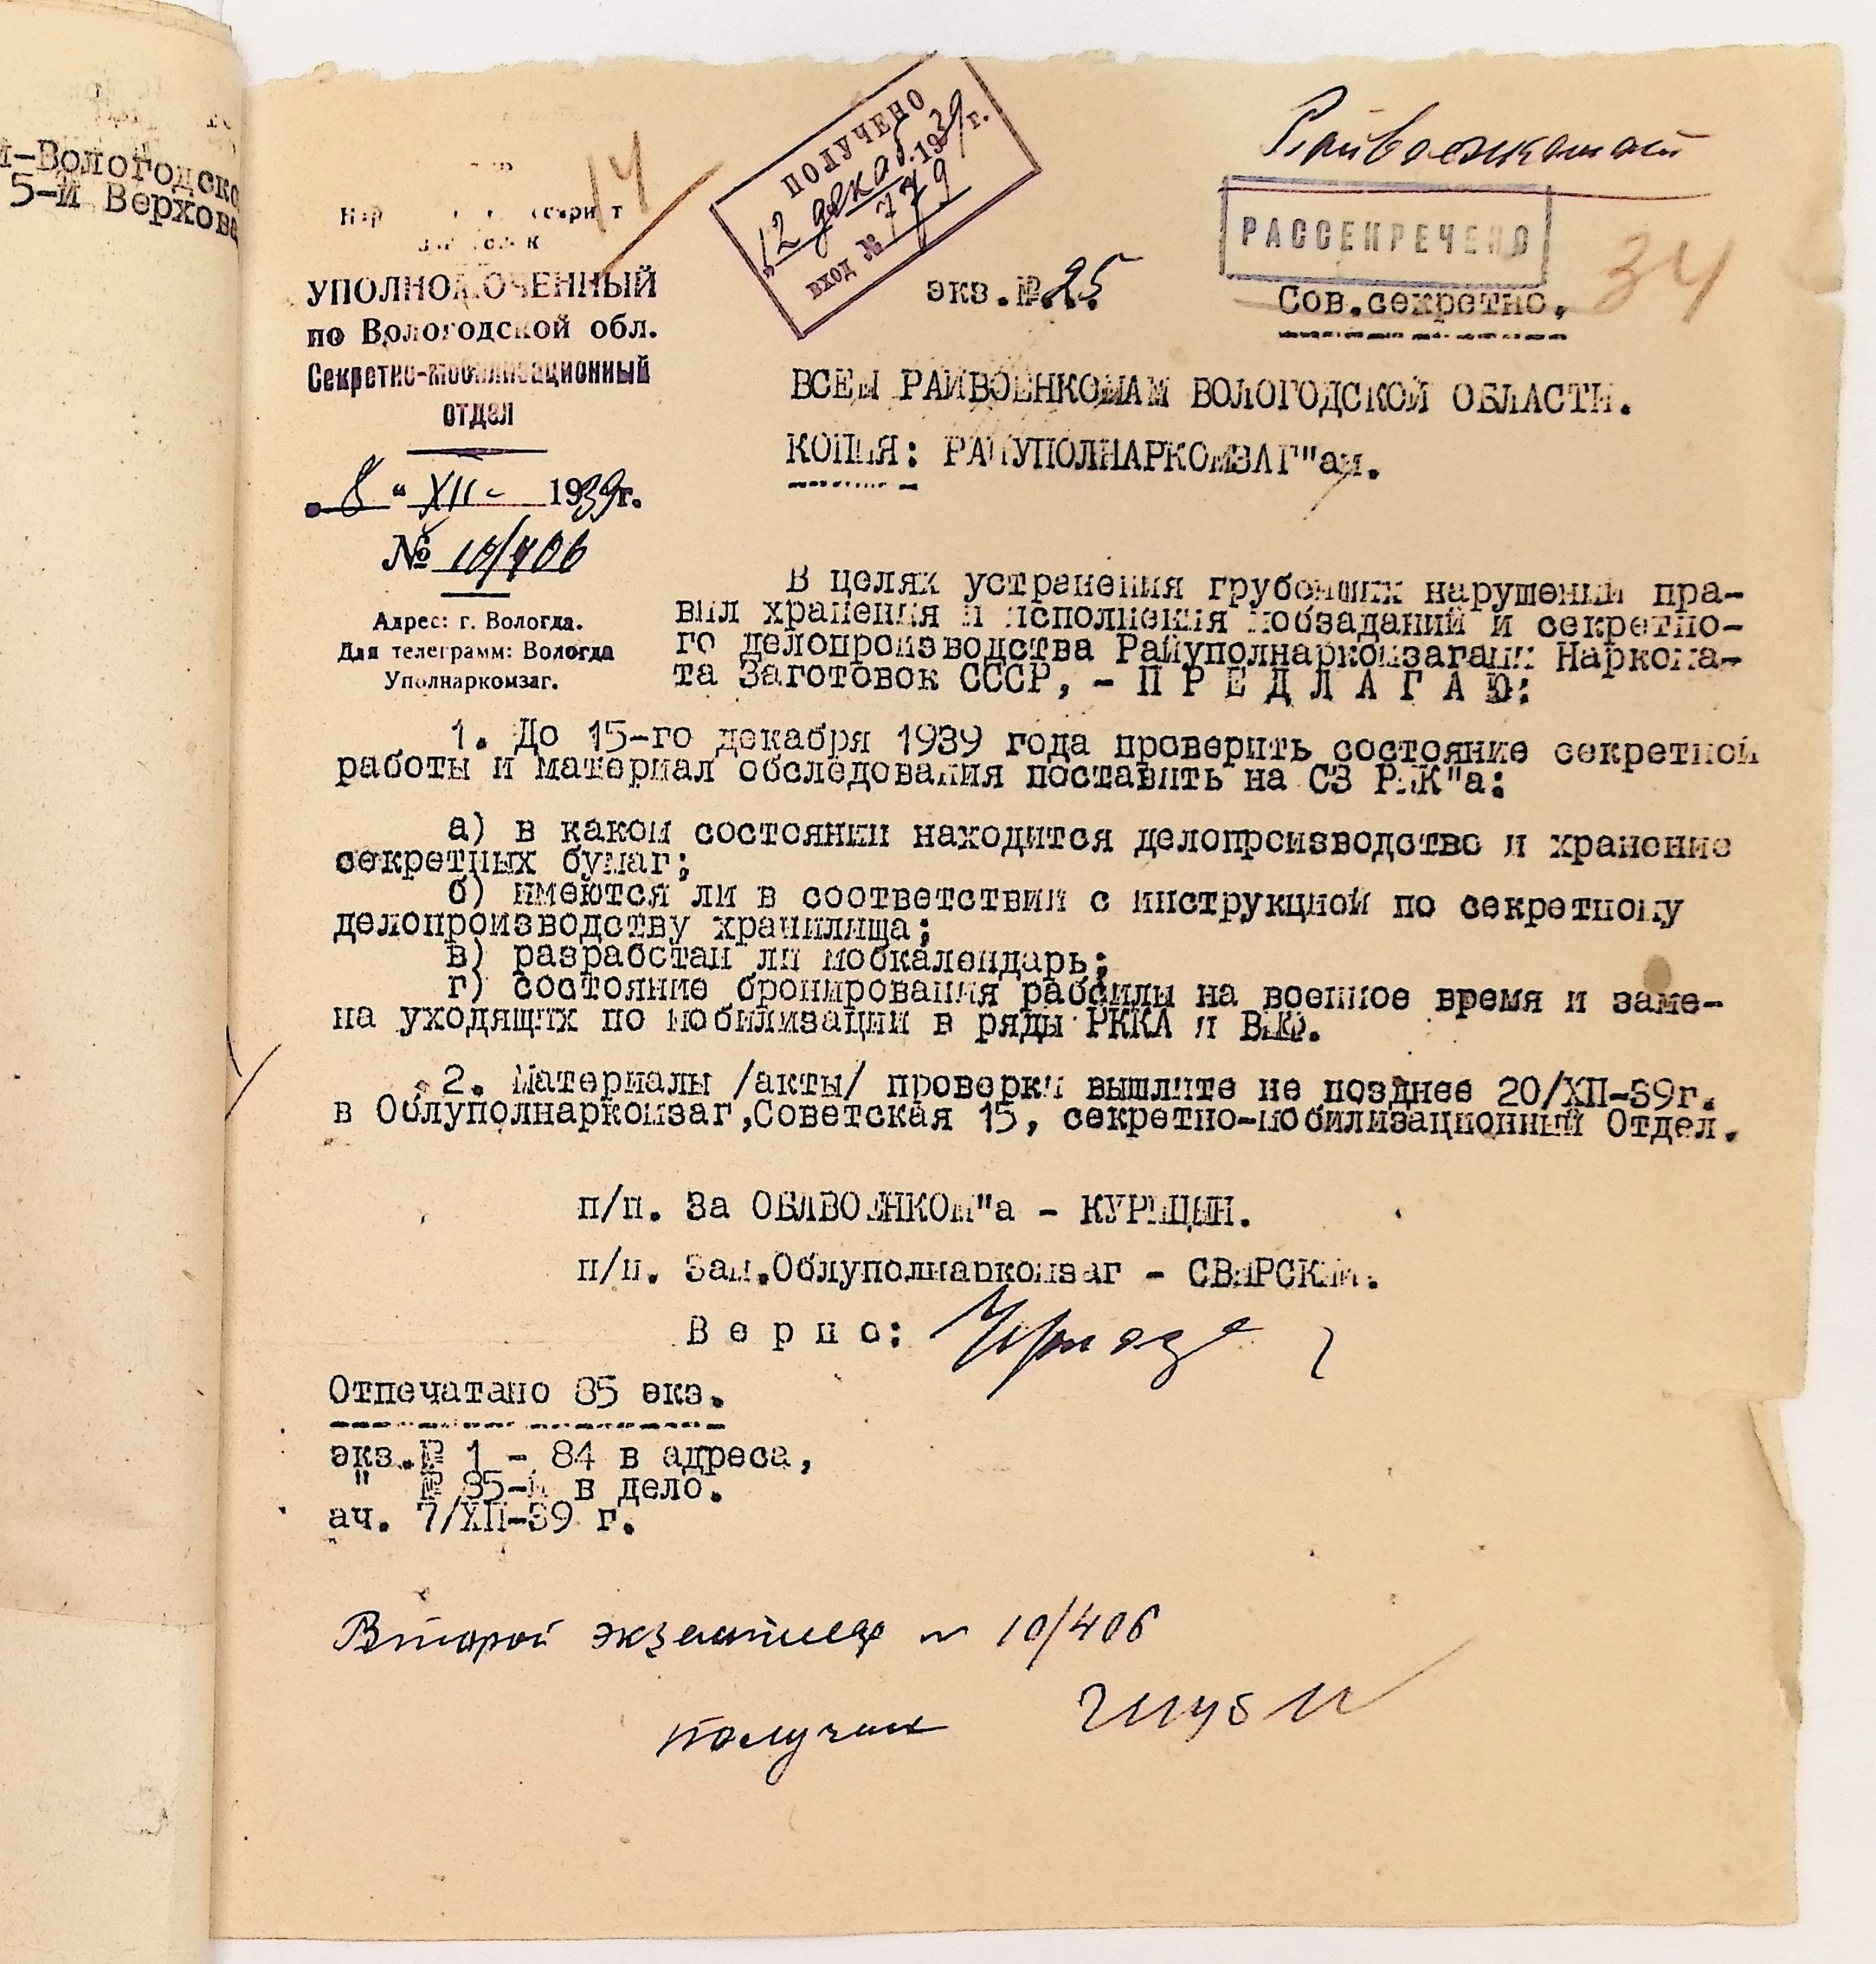 й-Вологодско
5-й Верхова
14
ПОЛУЧЕНО
"12 декаб. 1939 г.
вход № 779
Райвоенкомат
РАССЕКРЕЧЕНО
34
экз.№ 25
Сов.секретно.
УПОЛНОМОЧЕННЫЙ
по Вологодской обл.
Секретно-мобилизационный
отдел
"8" XII 1939г.
№ 10/406
Адрес: г. Вологда.
Для телеграмм: Вологда
Уполнаркомзаг.
ВСЕМ РАЙВОЕНКОМАМ ВОЛОГОДСКОЙ ОБЛАСТИ.
КОПИЯ: РАЙУПОЛНАРКОМЗАГ"ам.
В целях устранения грубейших нарушений пра-
вил хранения и исполнения мобзаданий и секретно-
го делопроизводства Райуполнаркомзагами Наркома-
та Заготовок СССР, - П Р Е Д Л А Г А Ю:
1. До 15-го декабря 1939 года проверить состояние секретной
работы и материал обследования поставить на СЗ РИК"а:
а) в каком состоянии находится делопроизводство и хранение
секретных бумаг;
б) имеются ли в соответствии с инструкцией по секретному
делопроизводству хранилища;
в) разработан ли мобкалендарь;
г) состояние бронирования рабсилы на военное время и заме-
на уходящих по мобилизации в ряды РККА и ВМФ.
2. Материалы /акты/ проверки вышлите не позднее 20/ХП-39г.
в Облуполнаркомзаг,Советская 15, секретно-мобилизационный Отдел.
п/п. За ОБЛВОЕНКОМ"а - КУРИЦЫН.
п/п. Зам.Облуполнаркомзаг - СВИРСКИЙ.
В е р н о:
Отпечатано 85 экз.
экз.№ 1 - 84 в адреса,
" № 85-й в дело.
ач. 7/ХП-39 г.
Второй экземпляр № 10/406
получил